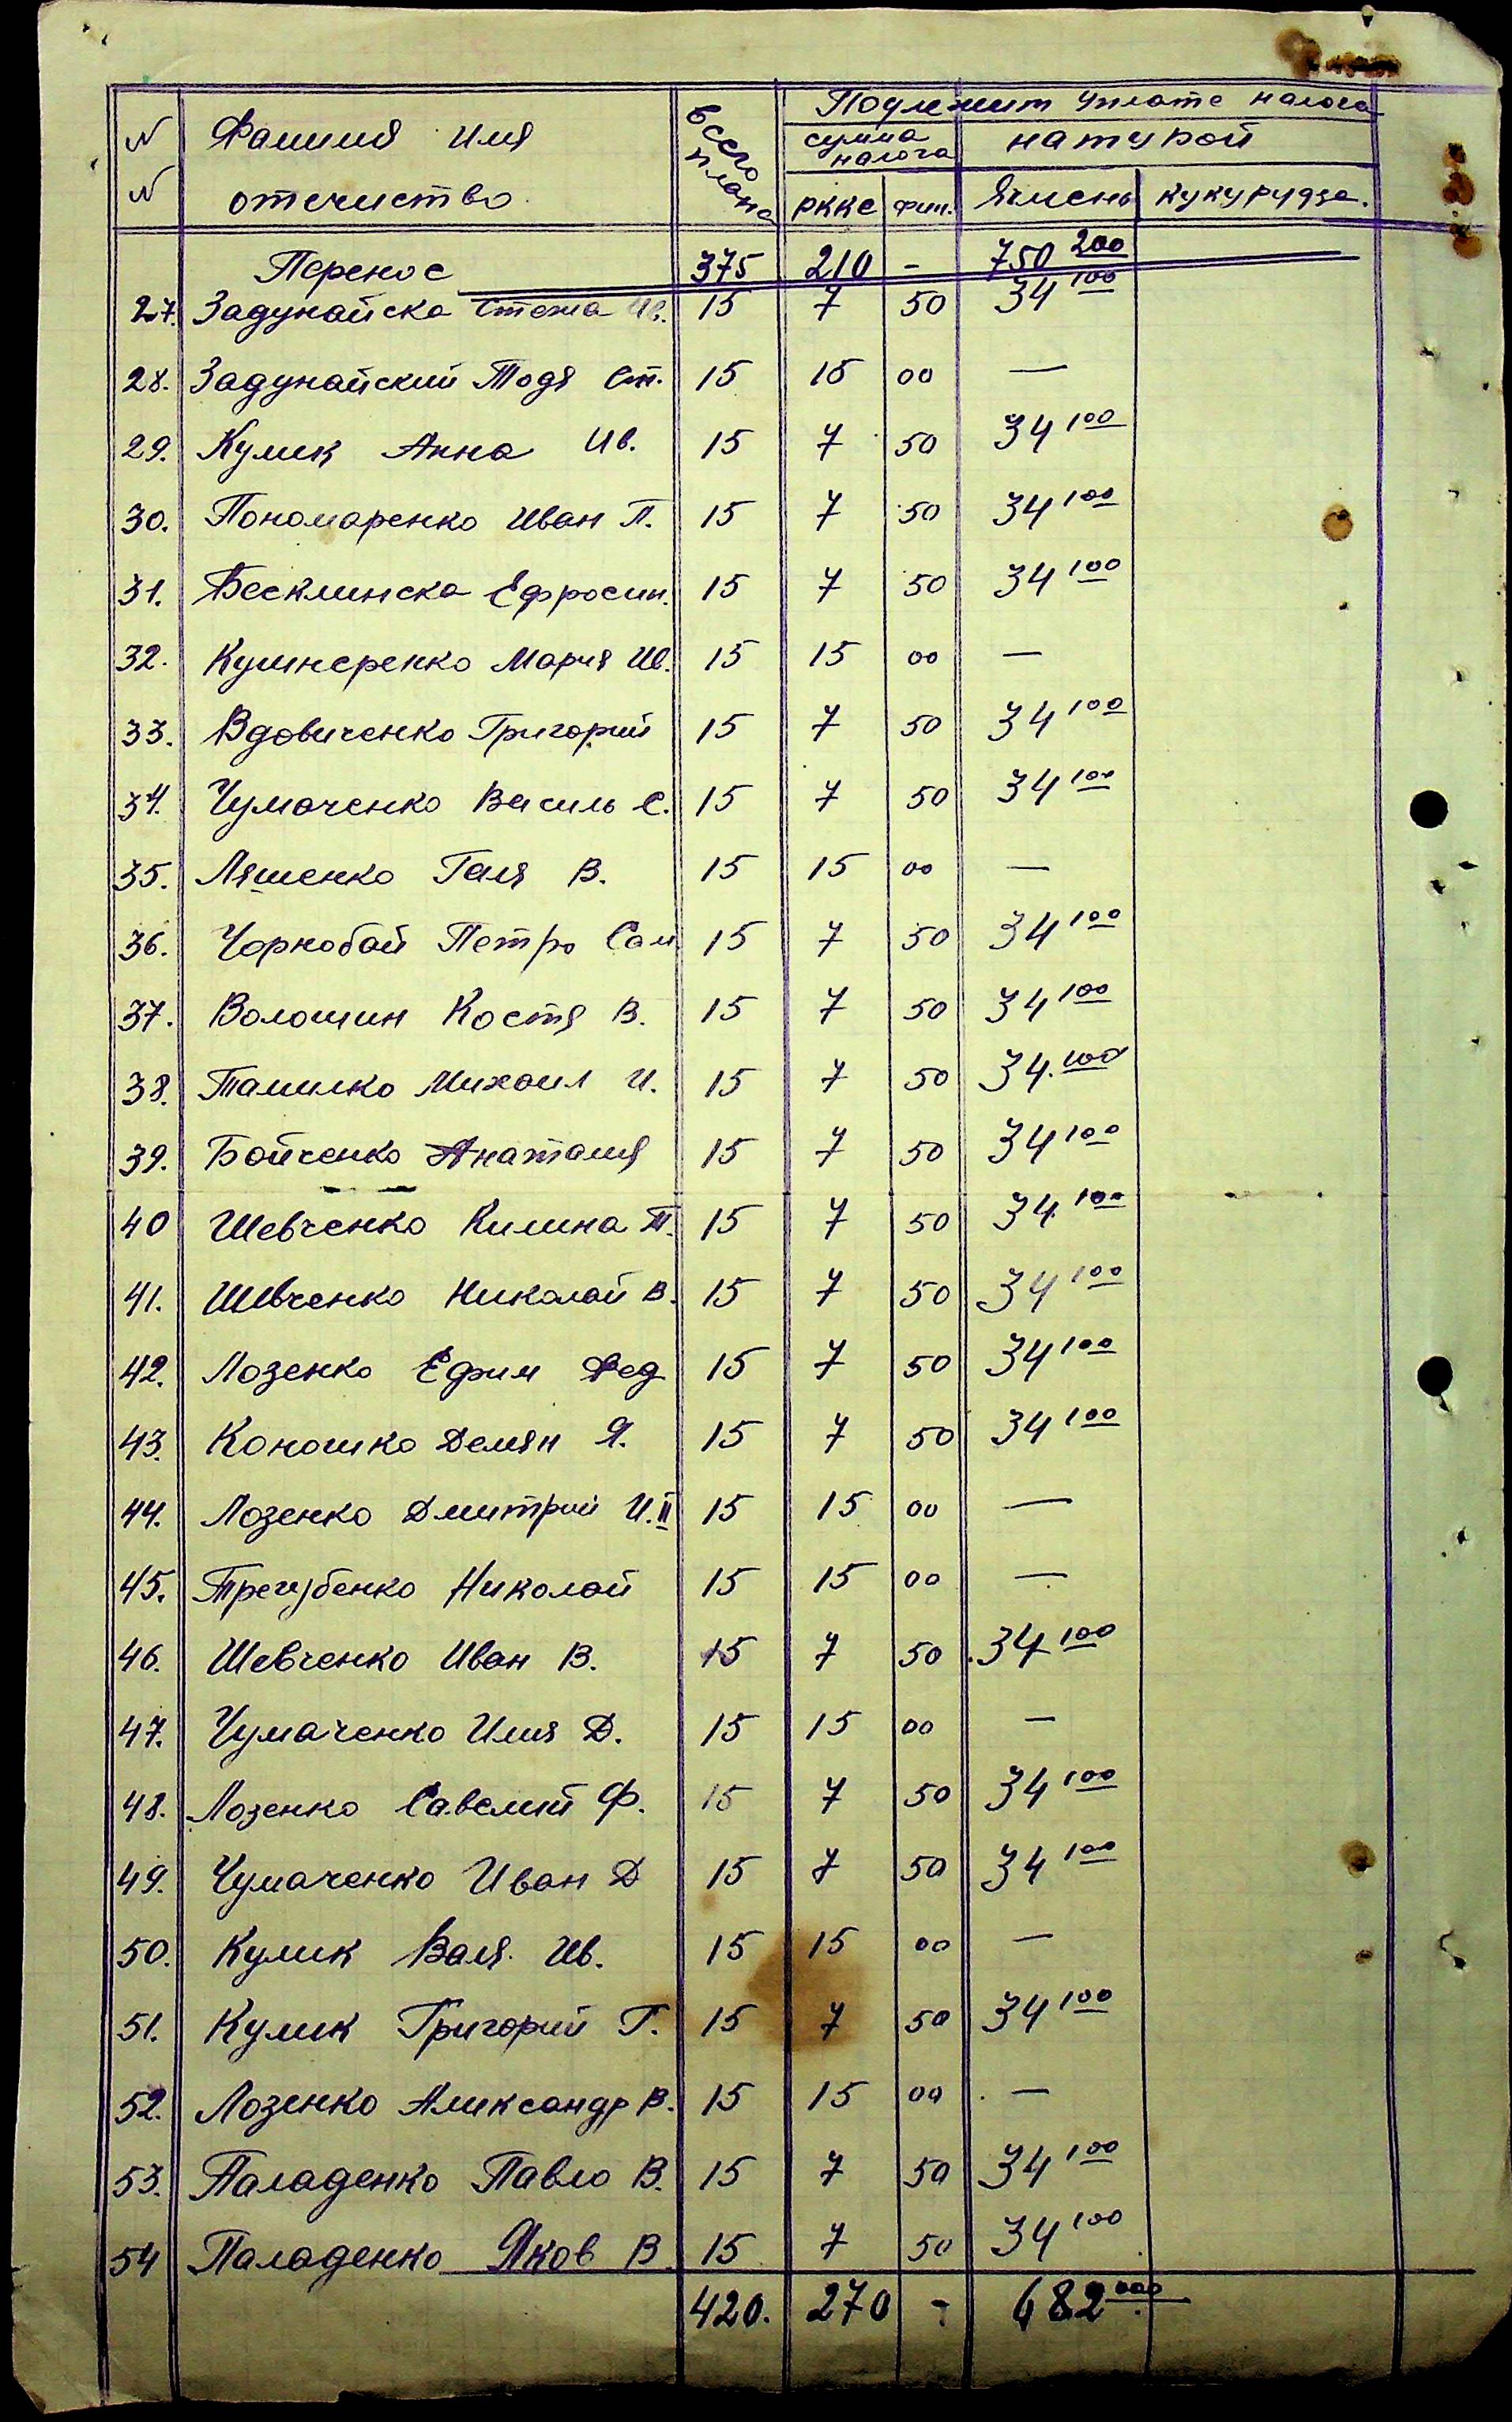 N N Фамилия Имя отечиство всего плана Подлежит уплате налога
сумма налога натурой
рккс фин. Ячмень кукурудза.
Перенос 375 210 - 750 200
27. Задунайска Стеха Ив. 15 7 50 34 100
28. Задунайский Тодя Ст. 15 15 00 —
29. Кулик Анна Ив. 15 7 50 34 100
30. Пономаренко Иван П. 15 7 50 34 100
31. Бесклинска Ефросин. 15 7 50 34 100
32. Кушнеренко Мария Ив. 15 15 00 —
33. Вдовиченко Григорий 15 7 50 34 100
34. Чумаченко Василь С. 15 7 50 34 100
35. Ляшенко Галя В. 15 15 00 —
36. Чорнобай Петро Сам 15 7 50 34 100
37. Волошин Костя В. 15 7 50 34 100
38. Тамилко Михаил И. 15 7 50 34. 100
39. Бойченко Анаталия 15 7 50 34 100
40 Шевченко Килина Т. 15 7 50 34 100
41. Шевченко Николай В. 15 7 50 34 100
42. Лозенко Ефим Фед 15 7 50 34 100
43. Коношко Демян Я. 15 7 50 34 100
44. Лозенко Дмитрий И. II 15 15 00 —
45. Трегубенко Николай 15 15 00 —
46. Шевченко Иван В. 15 7 50 34 100
47. Чумаченко Илия Д. 15 15 00 —
48. Лозенко Савелий Ф. 15 7 50 34 100
49. Чумаченко Иван Д 15 7 50 34 100
50. Кулик Валя Ив. 15 15 00 —
51. Кулик Григорий Г. 15 7 50 34 100
52. Лозенко Александр В. 15 15 00 —
53. Паладенко Павло В. 15 7 50 34 100
54 Паладенко Яков В 15 7 50 34 100
420. 270 - 682 000